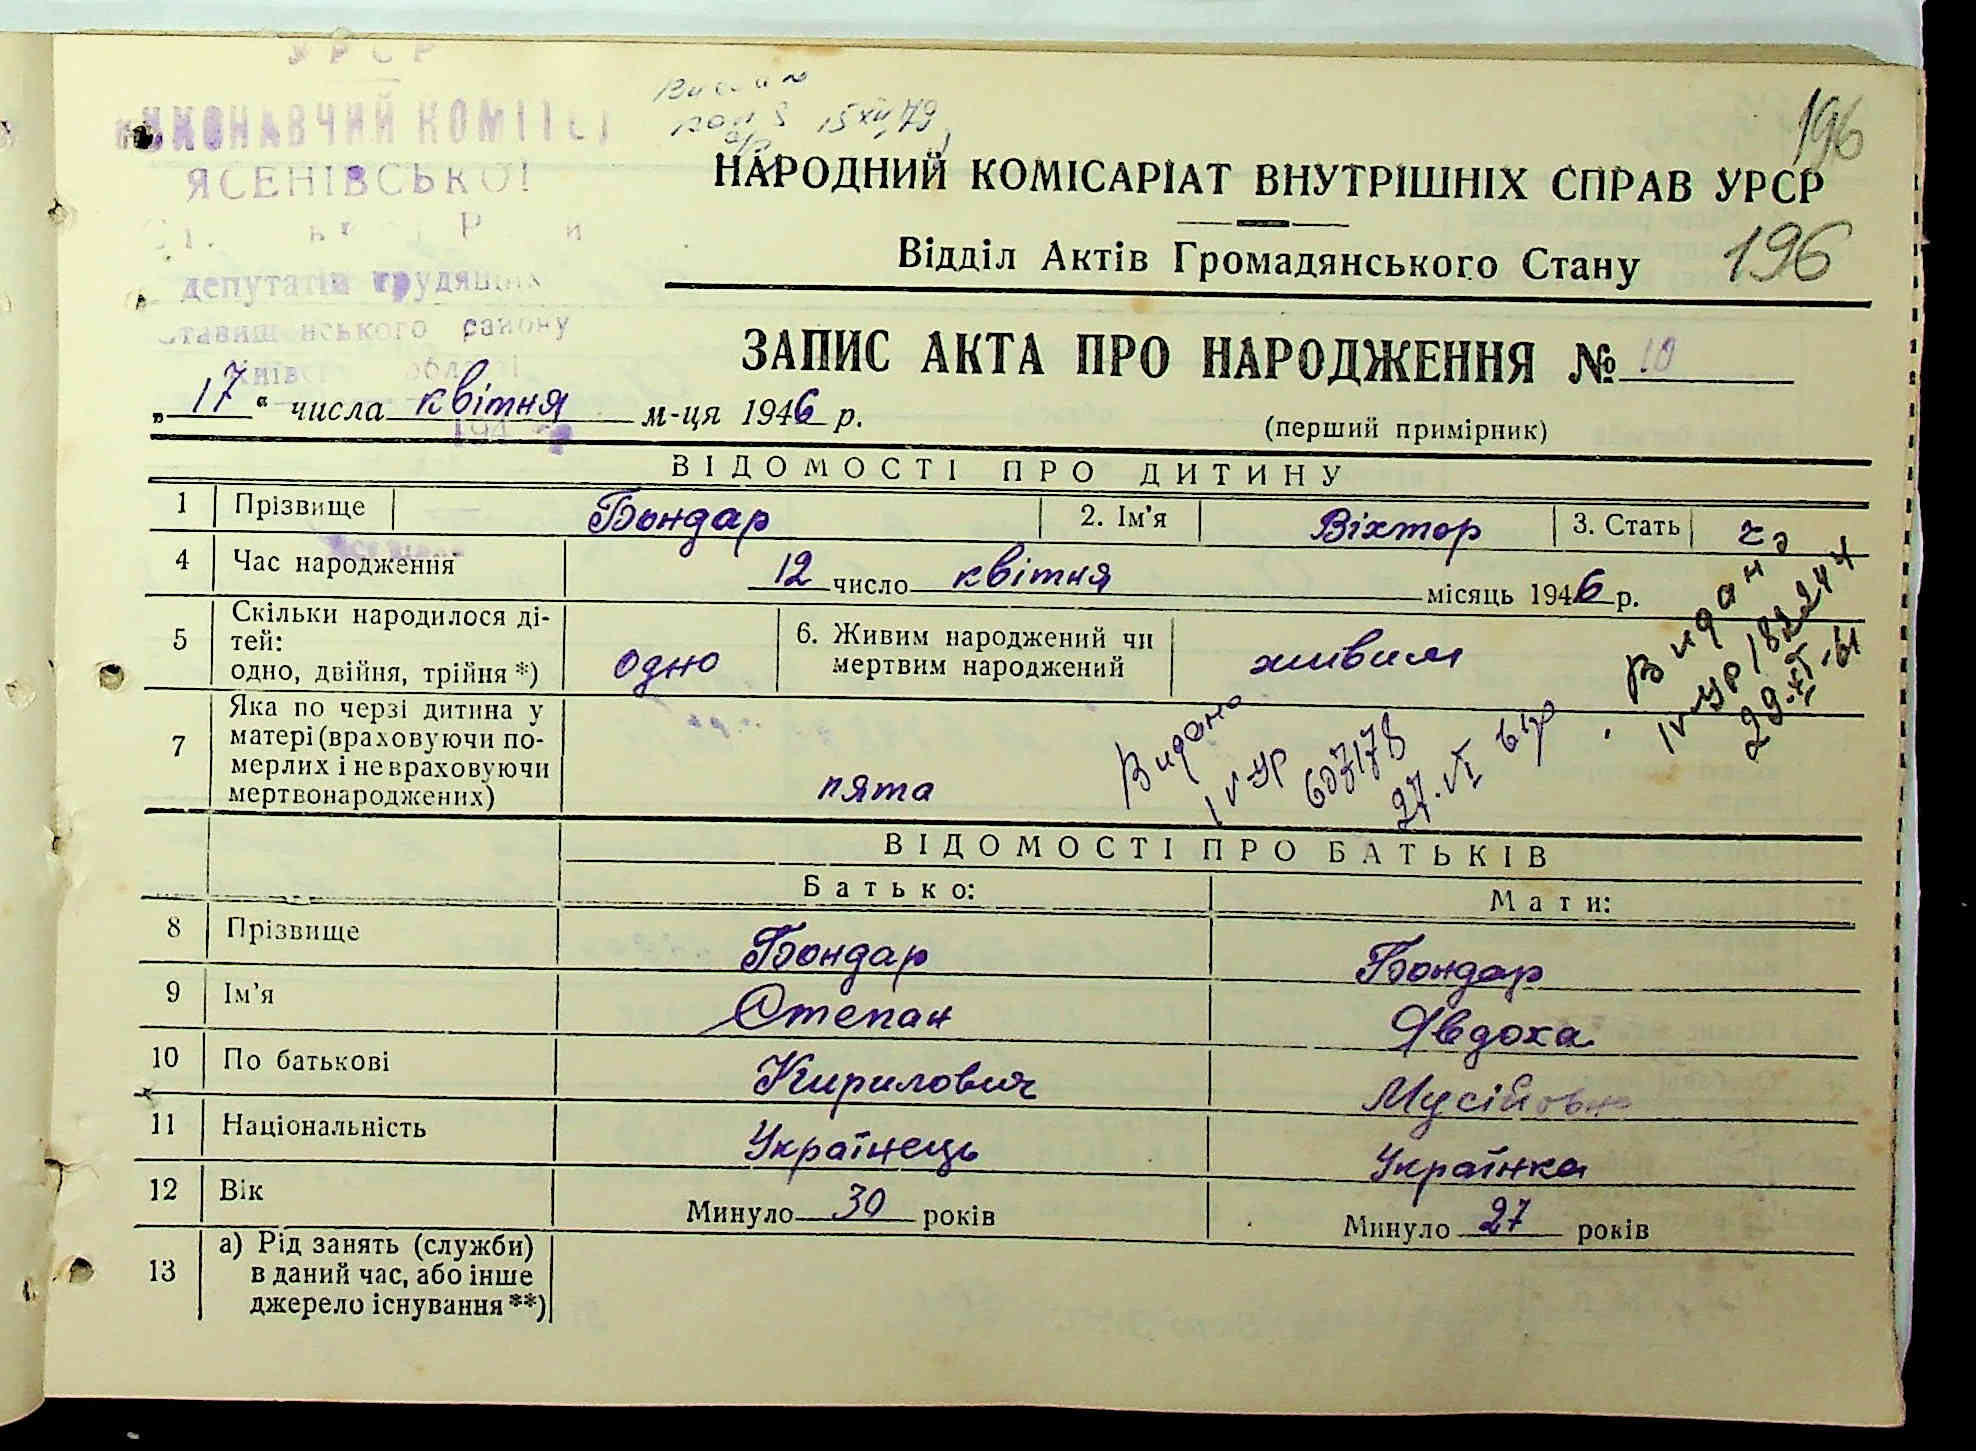 УРСР
ВИКОНАВЧИЙ КОМІТЕТ
ЯСЕНІВСЬКОЇ
депутатів трудящих
Ставищенського району
Київської області
15 XII 79
196
НАРОДНИЙ КОМІСАРІАТ ВНУТРІШНІХ СПРАВ УРСР
Відділ Актів Громадянського Стану 196
ЗАПИС АКТА ПРО НАРОДЖЕННЯ № 10
„17“ числа квітня м-ця 1946 р.
(перший примірник)
ВІДОМОСТІ ПРО ДИТИНУ
1 Прізвище Бондар 2. Ім'я Віхтор 3. Стать ч
4 Час народження 12 число квітня місяць 1946 р.
5 Скільки народилося ді-
тей:
одно, двійня, трійня *) одно 6. Живим народжений чи
мертвим народжений живим
Видано
IV УР 182244
29-XI-61
7 Яка по черзі дитина у
матері (враховуючи по-
мерлих і не враховуючи
мертвонароджених) пята
Видано
IV УР
607178
27.VI 61р
ВІДОМОСТІ ПРО БАТЬКІВ
Батько: Мати:
8 Прізвище Бондар Бондар
9 Ім'я Степан Явдоха
10 По батькові Кирилович Мусійовна
11 Національність Українець Українка
12 Вік Минуло 30 років Минуло 27 років
13 а) Рід занять (служби)
в даний час, або інше
джерело існування **)